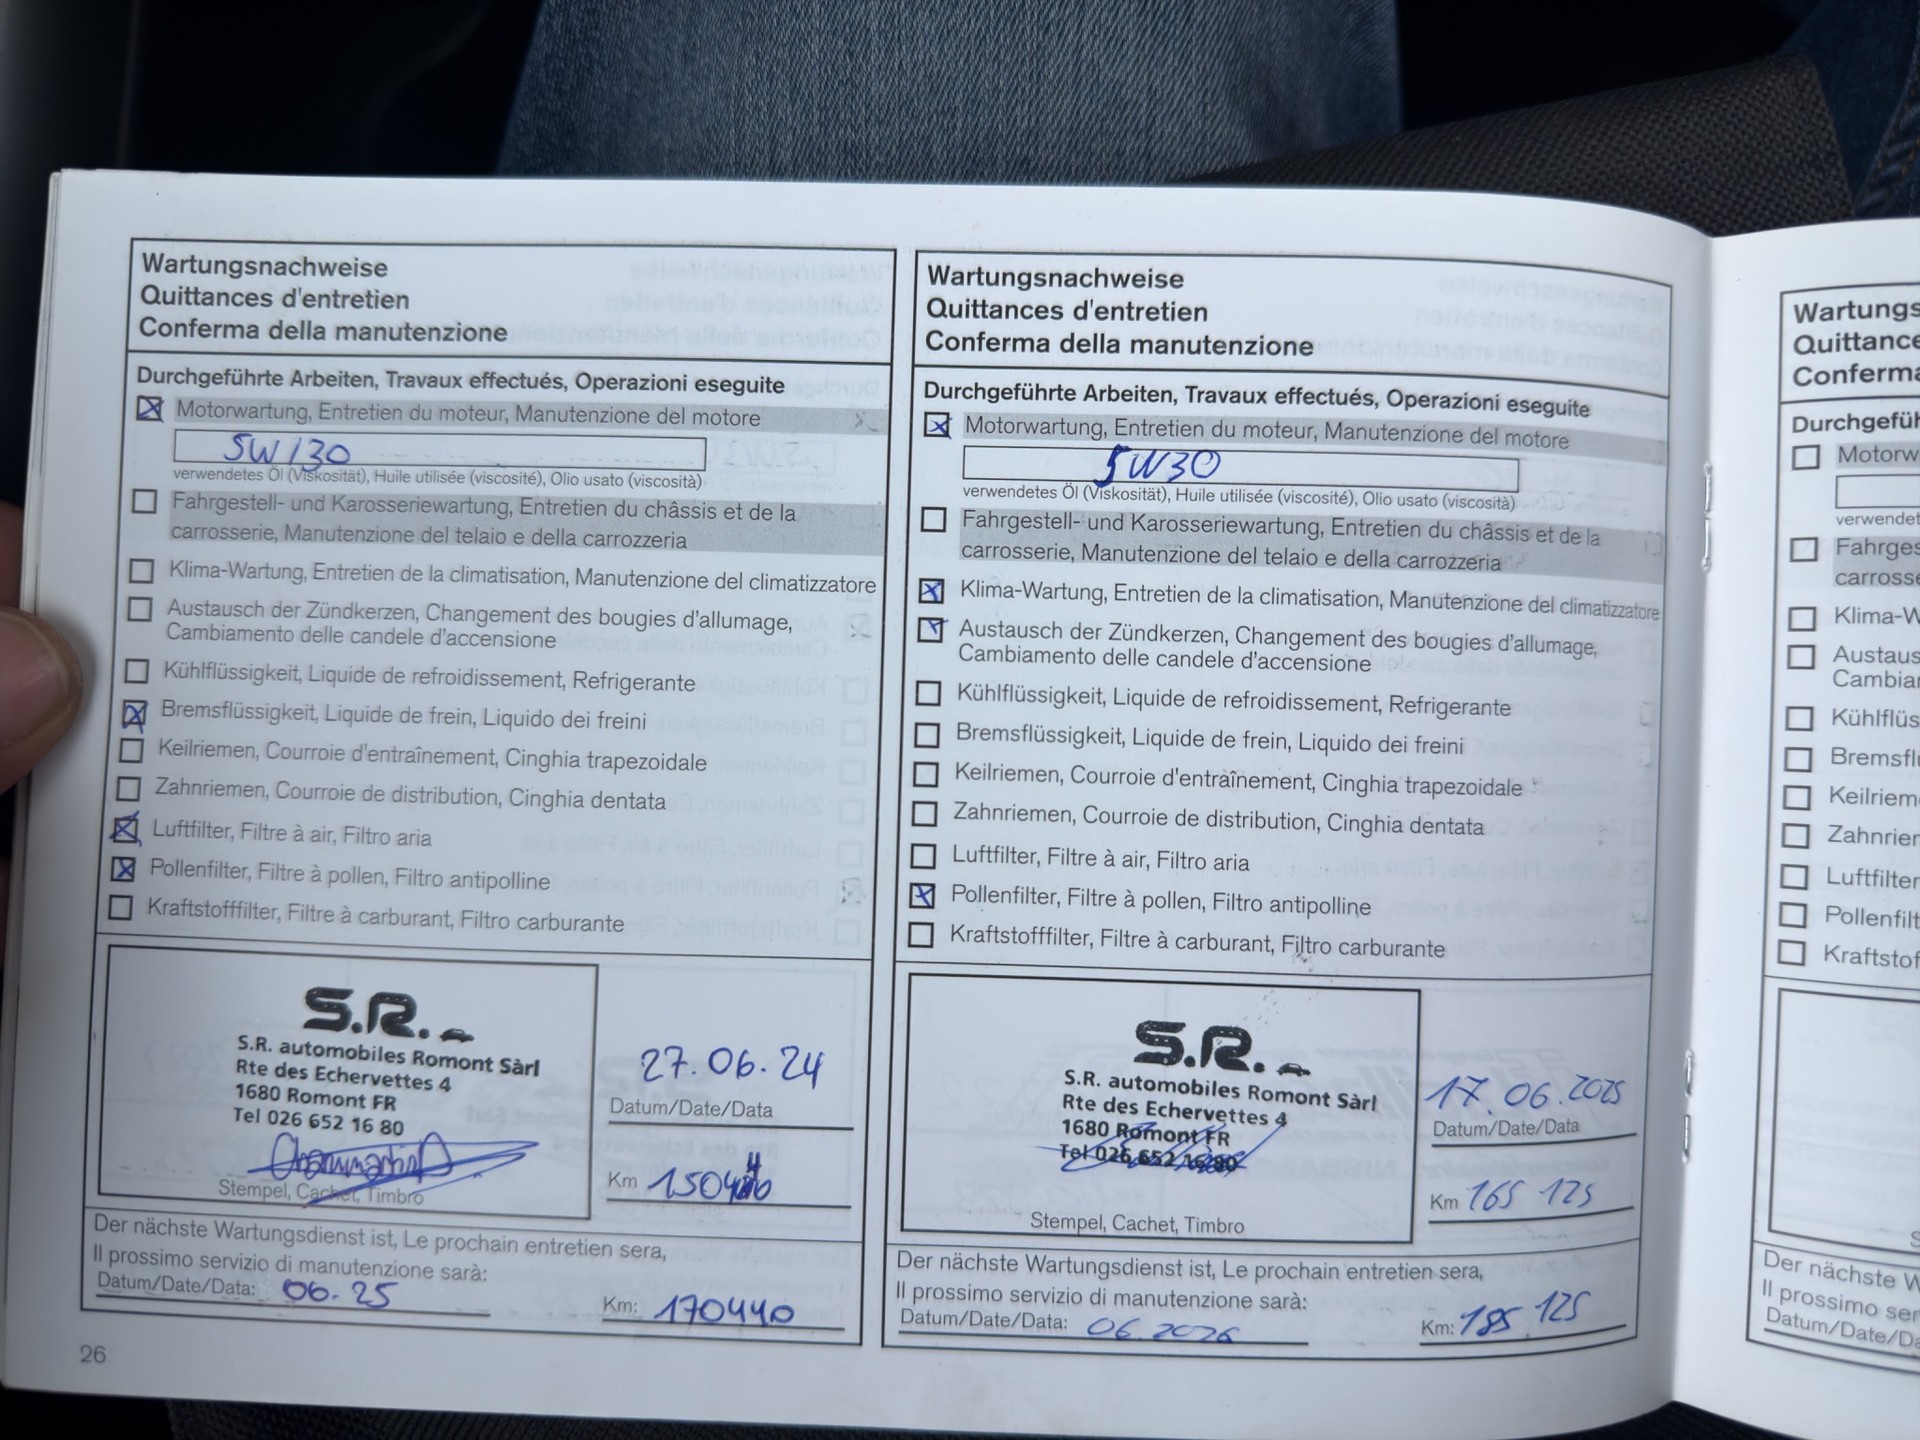 Wartungsnachweise
Quittances d'entretien
Conferma della manutenzione
Durchgeführte Arbeiten, Travaux effectués, Operazioni eseguite
Motorwartung, Entretien du moteur, Manutenzione del motore
5W/30
verwendetes Öl (Viskosität), Huile utilisée (viscosité), Olio usato (viscosità)
Fahrgestell- und Karosseriewartung, Entretien du châssis et de la
carrosserie, Manutenzione del telaio e della carrozzeria
Klima-Wartung, Entretien de la climatisation, Manutenzione del climatizzatore
Austausch der Zündkerzen, Changement des bougies d'allumage,
Cambiamento delle candele d'accensione
Kühlflüssigkeit, Liquide de refroidissement, Refrigerante
Bremsflüssigkeit, Liquide de frein, Liquido dei freini
Keilriemen, Courroie d'entraînement, Cinghia trapezoidale
Zahnriemen, Courroie de distribution, Cinghia dentata
Luftfilter, Filtre à air, Filtro aria
Pollenfilter, Filtre à pollen, Filtro antipolline
Kraftstofffilter, Filtre à carburant, Filtro carburante
S.R.
S.R. automobiles Romont Sàrl
Rte des Echervettes 4
1680 Romont FR
Tel 026 652 16 80
Stempel, Cachet, Timbro
27.06.24
Datum/Date/Data
Km
Der nächste Wartungsdienst ist, Le prochain entretien sera,
Il prossimo servizio di manutenzione sarà:
Datum/Date/Data: 06.25
Km: 170440
26
Wartungsnachweise
Quittances d'entretien
Conferma della manutenzione
Durchgeführte Arbeiten, Travaux effectués, Operazioni eseguite
Motorwartung, Entretien du moteur, Manutenzione del motore
5W30
verwendetes Öl (Viskosität), Huile utilisée (viscosité), Olio usato (viscosità)
Fahrgestell- und Karosseriewartung, Entretien du châssis et de la
carrosserie, Manutenzione del telaio e della carrozzeria
Klima-Wartung, Entretien de la climatisation, Manutenzione del climatizzatore
Austausch der Zündkerzen, Changement des bougies d'allumage,
Cambiamento delle candele d'accensione
Kühlflüssigkeit, Liquide de refroidissement, Refrigerante
Bremsflüssigkeit, Liquide de frein, Liquido dei freini
Keilriemen, Courroie d'entraînement, Cinghia trapezoidale
Zahnriemen, Courroie de distribution, Cinghia dentata
Luftfilter, Filtre à air, Filtro aria
Pollenfilter, Filtre à pollen, Filtro antipolline
Kraftstofffilter, Filtre à carburant, Filtro carburante
S.R.
S.R. automobiles Romont Sàrl
Rte des Echervettes 4
1680 Romont FR
Tel 026 652 16 80
Stempel, Cachet, Timbro
17.06.2025
Datum/Date/Data
Km 165 125
Der nächste Wartungsdienst ist, Le prochain entretien sera,
Il prossimo servizio di manutenzione sarà:
Datum/Date/Data: 06.2026
Km: 185 125
Wartungs
Quittance
Conferma
Durchgefüh
Motorw
verwendet
Fahrges
carrosse
Klima-W
Austaus
Cambiar
Kühlflüs
Bremsflü
Keilriem
Zahnrier
Luftfilter
Pollenfilt
Kraftstof
S
Der nächste W
Il prossimo ser
Datum/Date/Da